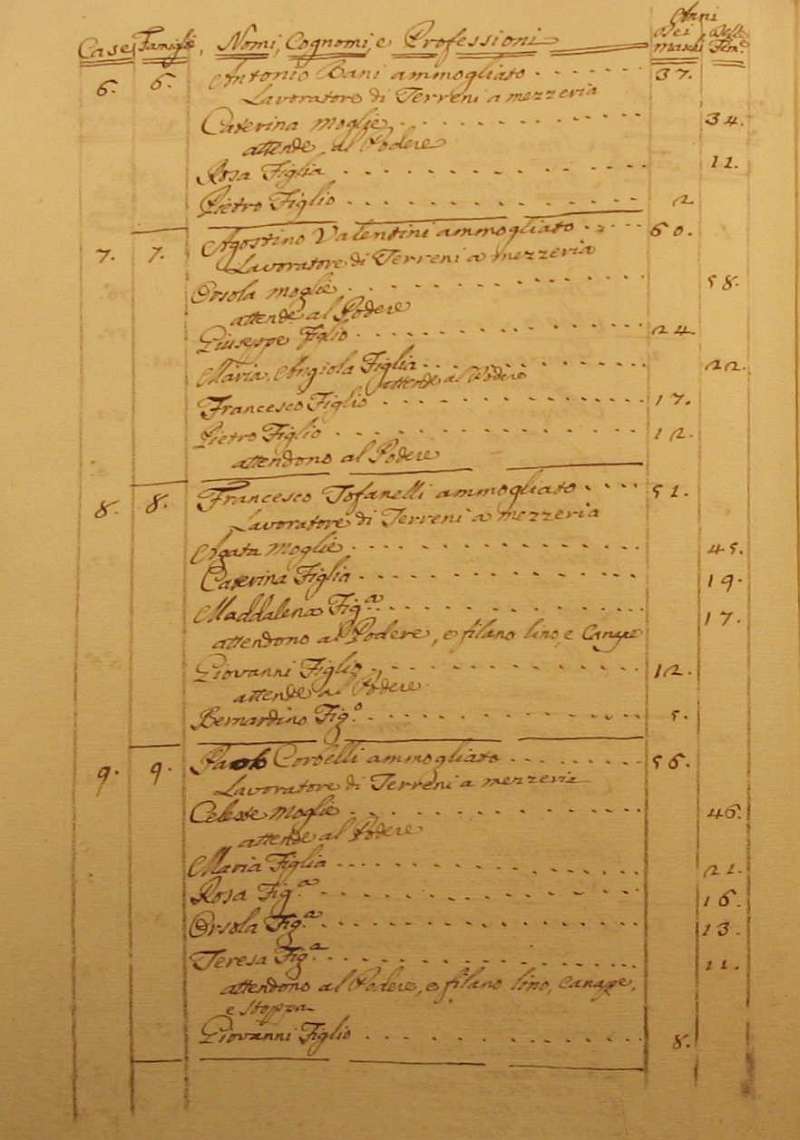 Anni
Case Famigl. Nomi, Cognomi, e Professioni dei maschi delle Fem.e
6. 6. Antonio Bani ammogliato 37.
Lavoratore di Terreni a mezzeria
Caterina moglie 34.
attende al Podere
Rosa Figlia 11.
Pietro Figlio 2
7. 7. Agostino Valentini ammogliato 60.
Lavoratore di Terreni a mezzeria
Orsola moglie 58.
attende al Podere
Giuseppe Figlio 24.
Maria Angiola Figlia 22.
attende al Podere
Francesco Figlio 17.
Pietro Figlio 12.
attendono al Podere
8. 8. Francesco Tofanelli ammogliato 51.
Lavoratore di Terreni a mezzeria
Agata Moglie 45.
Caterina Figlia 19.
Maddalena Fig.a 17.
attendono al Podere, e filano lino, e Canape
Giovanni Figlio 12.
attende al Podere
Bernardino Fig.o 5.
9. 9. Paolo Corbelli ammogliato 56.
Lavoratore di Terreni a mezzeria
Celeste Moglie 46.
attende al Podere
Maria Figlia 21.
Rosa Fig.a 16.
Orsola Fig.a 13.
Teresa Fig.a 11.
attendono al Podere, e filano lino, Canape,
e stoppa
Giovanni Figlio 8.